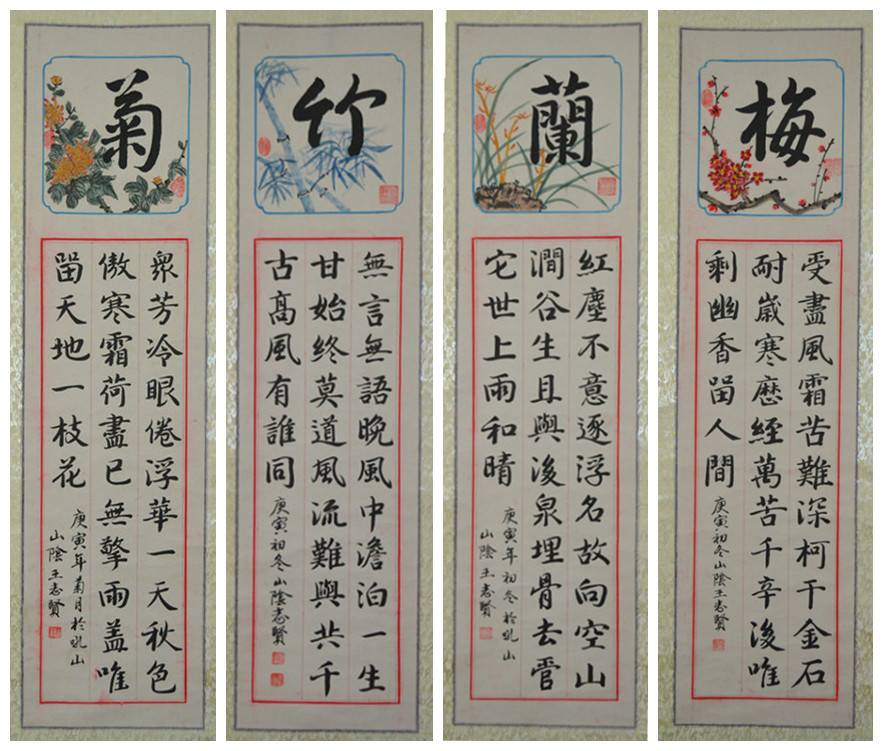 梅
受盡風霜苦難深柯干金石
耐歲寒歷經萬苦千辛後唯
剩幽香留人間
庚寅初冬山陰王志賢
蘭
紅塵不意逐浮名故向空山
澗谷生且與後泉埋骨去管
它世上雨和晴
庚寅年初冬於吼山
山陰王志賢
竹
無言無語晚風中澹泊一生
甘始終莫道風流難與共千
古高風有誰同
庚寅初冬山陰志賢
菊
眾芳冷眼倦浮華一天秋色
傲寒霜荷盡已無擎雨盖唯
留天地一枝花
庚寅年菊月於吼山
山陰王志賢